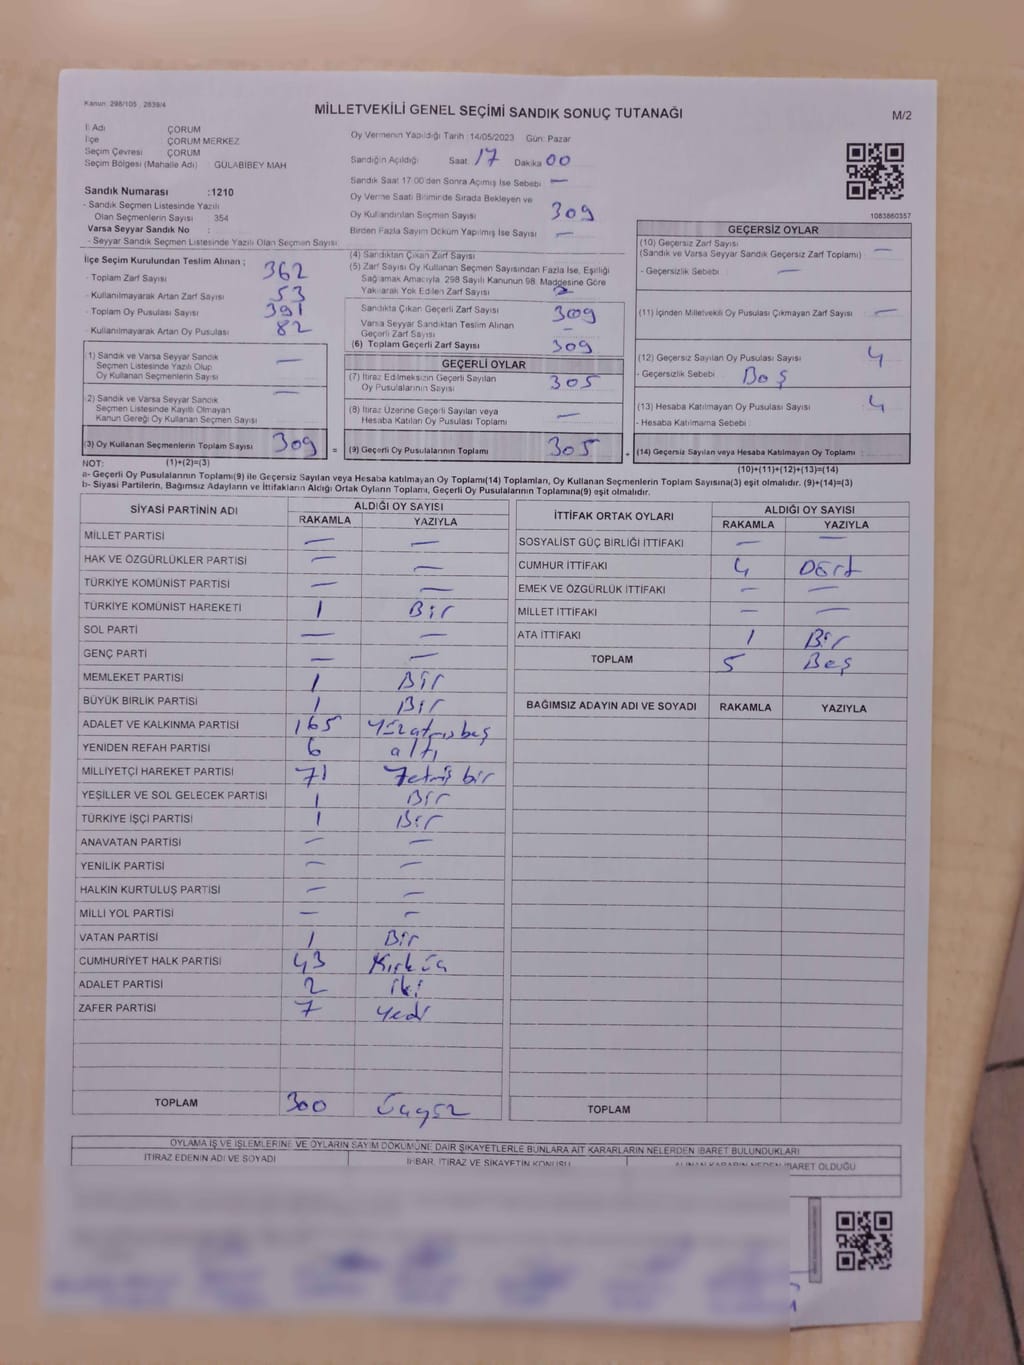 Kanun: 298/105 , 2839/4
MİLLETVEKİLİ GENEL SEÇİMİ SANDIK SONUÇ TUTANAĞI
M/2
İl Adı ÇORUM
İlçe ÇORUM MERKEZ
Seçim Çevresi ÇORUM
Seçim Bölgesi (Mahalle Adı) : GÜLABİBEY MAH
Sandık Numarası :1210
- Sandık Seçmen Listesinde Yazılı
Olan Seçmenlerin Sayısı : 354
Varsa Seyyar Sandık No :
- Seyyar Sandık Seçmen Listesinde Yazılı Olan Seçmen Sayısı
Oy Vermenin Yapıldığı Tarih :14/05/2023 Gün: Pazar
Sandığın Açıldığı Saat: 17 Dakika 00
Sandık Saat 17:00'den Sonra Açılmış İse Sebebi: —
Oy Verme Saati Bitiminde Sırada Bekleyen ve
Oy Kullandırılan Seçmen Sayısı 309
Birden Fazla Sayım Döküm Yapılmış İse Sayısı —
1083860357
İlçe Seçim Kurulundan Teslim Alınan ;
- Toplam Zarf Sayısı 362
- Kullanılmayarak Artan Zarf Sayısı 53
- Toplam Oy Pusulası Sayısı 391
- Kullanılmayarak Artan Oy Pusulası 82
1) Sandık ve Varsa Seyyar Sandık
Seçmen Listesinde Yazılı Olup
Oy Kullanan Seçmenlerin Sayısı —
2) Sandık ve Varsa Seyyar Sandık
Seçmen Listesinde Kayıtlı Olmayan
Kanun Gereği Oy Kullanan Seçmen Sayısı —
(3) Oy Kullanan Seçmenlerin Toplam Sayısı 309 =
(4) Sandıktan Çıkan Zarf Sayısı
(5) Zarf Sayısı Oy Kullanan Seçmen Sayısından Fazla İse, Eşitliği
Sağlamak Amacıyla, 298 Sayılı Kanunun 98. Maddesine Göre
Yakılarak Yok Edilen Zarf Sayısı
Sandıkta Çıkan Geçerli Zarf Sayısı 309
Varsa Seyyar Sandıktan Teslim Alınan
Geçerli Zarf Sayısı —
(6) Toplam Geçerli Zarf Sayısı 309
GEÇERLİ OYLAR
(7) İtiraz Edilmeksizin Geçerli Sayılan
Oy Pusulalarının Sayısı 305
(8) İtiraz Üzerine Geçerli Sayılan veya
Hesaba Katılan Oy Pusulası Toplamı —
(9) Geçerli Oy Pusulalarının Toplamı 305
GEÇERSİZ OYLAR
(10) Geçersiz Zarf Sayısı
(Sandık ve Varsa Seyyar Sandık Geçersiz Zarf Toplamı) —
- Geçersizlik Sebebi : —
(11) İçinden Milletvekili Oy Pusulası Çıkmayan Zarf Sayısı —
(12) Geçersiz Sayılan Oy Pusulası Sayısı 4
- Geçersizlik Sebebi : Boş
(13) Hesaba Katılmayan Oy Pusulası Sayısı 4
- Hesaba Katılmama Sebebi :
(14) Geçersiz Sayılan veya Hesaba Katılmayan Oy Toplamı :
NOT: (1)+(2)=(3)
(10)+(11)+(12)+(13)=(14)
a- Geçerli Oy Pusulalarının Toplamı(9) ile Geçersiz Sayılan veya Hesaba katılmayan Oy Toplamı(14) Toplamları, Oy Kullanan Seçmenlerin Toplam Sayısına(3) eşit olmalıdır. (9)+(14)=(3)
b- Siyasi Partilerin, Bağımsız Adayların ve İttifakların Aldığı Ortak Oyların Toplamı, Geçerli Oy Pusulalarının Toplamına(9) eşit olmalıdır.
SİYASİ PARTİNİN ADI ALDIĞI OY SAYISI
RAKAMLA YAZIYLA
MİLLET PARTİSİ — —
HAK VE ÖZGÜRLÜKLER PARTİSİ — —
TÜRKİYE KOMÜNİST PARTİSİ — —
TÜRKİYE KOMÜNİST HAREKETİ 1 Bir
SOL PARTİ — —
GENÇ PARTİ — —
MEMLEKET PARTİSİ 1 Bir
BÜYÜK BİRLİK PARTİSİ 1 Bir
ADALET VE KALKINMA PARTİSİ 165 Yüzatmışbeş
YENİDEN REFAH PARTİSİ 6 altı
MİLLİYETÇİ HAREKET PARTİSİ 71 Yetmiş bir
YEŞİLLER VE SOL GELECEK PARTİSİ 1 Bir
TÜRKİYE İŞÇİ PARTİSİ 1 Bir
ANAVATAN PARTİSİ — —
YENİLİK PARTİSİ — —
HALKIN KURTULUŞ PARTİSİ — —
MİLLİ YOL PARTİSİ — —
VATAN PARTİSİ 1 Bir
CUMHURİYET HALK PARTİSİ 43 Kırküç
ADALET PARTİSİ 2 iki
ZAFER PARTİSİ 7 Yedi
TOPLAM 300 Üçyüz
İTTİFAK ORTAK OYLARI ALDIĞI OY SAYISI
RAKAMLA YAZIYLA
SOSYALİST GÜÇ BİRLİĞİ İTTİFAKI — —
CUMHUR İTTİFAKI 4 Dört
EMEK VE ÖZGÜRLÜK İTTİFAKI — —
MİLLET İTTİFAKI — —
ATA İTTİFAKI 1 Bir
TOPLAM 5 Beş
BAĞIMSIZ ADAYIN ADI VE SOYADI RAKAMLA YAZIYLA
TOPLAM
OYLAMA İŞ VE İŞLEMLERİNE VE OYLARIN SAYIM DÖKÜMÜNE DAİR ŞİKAYETLERLE BUNLARA AİT KARARLARIN NELERDEN İBARET BULUNDUKLARI
İTİRAZ EDENİN ADI VE SOYADI İHBAR, İTİRAZ VE ŞİKAYETİN KONUSU ALINAN KARARIN NEDEN İBARET OLDUĞU